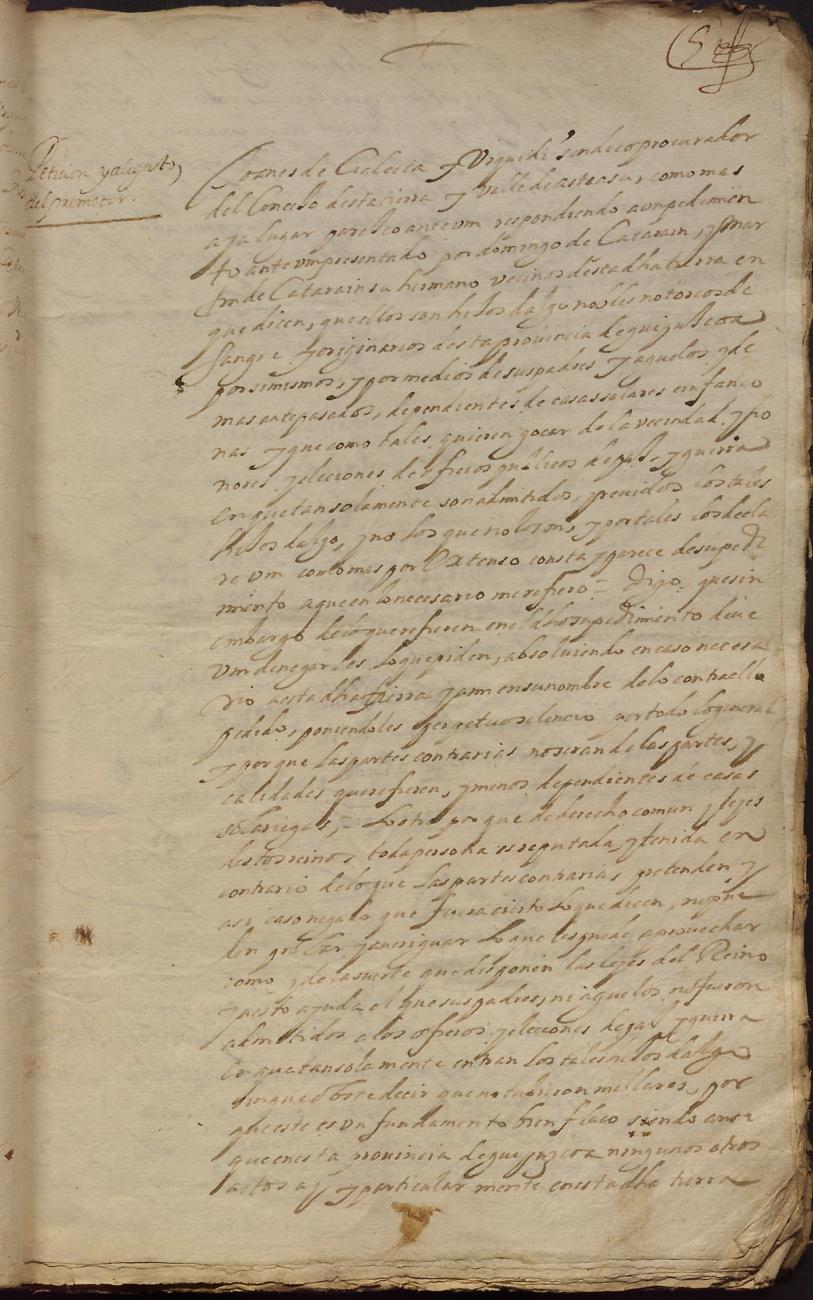 Peticion y alegato
del promotor.
Joanes de Çialceta y Viquidi sindico procurador
del Concejo desta tierra y valle de asteasu, como mas
aya lugar paresco ante vm respondiendo a un pedimien
to ante vm presentado por domingo de Catarain, y Mar
tin de Catarain su hermano vecinos desta dha tierra en
que dicen, que ellos son hijos dalgo nobles notorios de
sangre y originarios desta provincia de guipuscoa
por si mismos, y por medios de sus padres y aguelos y de
mas antepasados, dependientes de casas solares infanço
nas y que como tales quieren goçar de la vecindad y ho
nores y eleciones de oficios publicos de paz, y guerra
en que tan solamente son admitidos, y preuidos los tales
hijos dalgo, y no los que no lo son, y por tales los decla
re vm como mas por Extenso consta y parece de su pedi
miento a que en lo necesario me refiero = Digo, que sin
embargo de lo que refieren en el dho su pedimiento deue
vm denegarles lo que piden, absoluiendo en caso necesa
rio a esta dha tierra y a mi en su nombre de lo contra ello
pedido, poniendoles perpetuo silencio por todo lo general
y por que las partes contrarias no seran de las partes, y
calidades que refieren, y menos dependientes de casas
solariegas, = Lo otro por que de derecho comun y leyes
destos reinos toda persona es reputada, y tenida en
contrario de lo que las partes contrarias pretenden, y
asi caso negado que fuera cierto lo que dicen, nesçne
den probar y aueriguar lo que les puede aprouechar
como y de la suerte que disponen las leyes del Reino
y a esto ayuda el que sus padres, ni aguelos no fueron
admitidos a los oficios y eleciones de paz y guerra
en que tan solamente entran los tales hijos dalgo
sin que obste decir que no tubieron millares, por
que este es un fundamento bien flaco siendo ansi
que en esta provincia de guipuzcoa ningunos otros
actos ay y particularmente en esta dha tierra